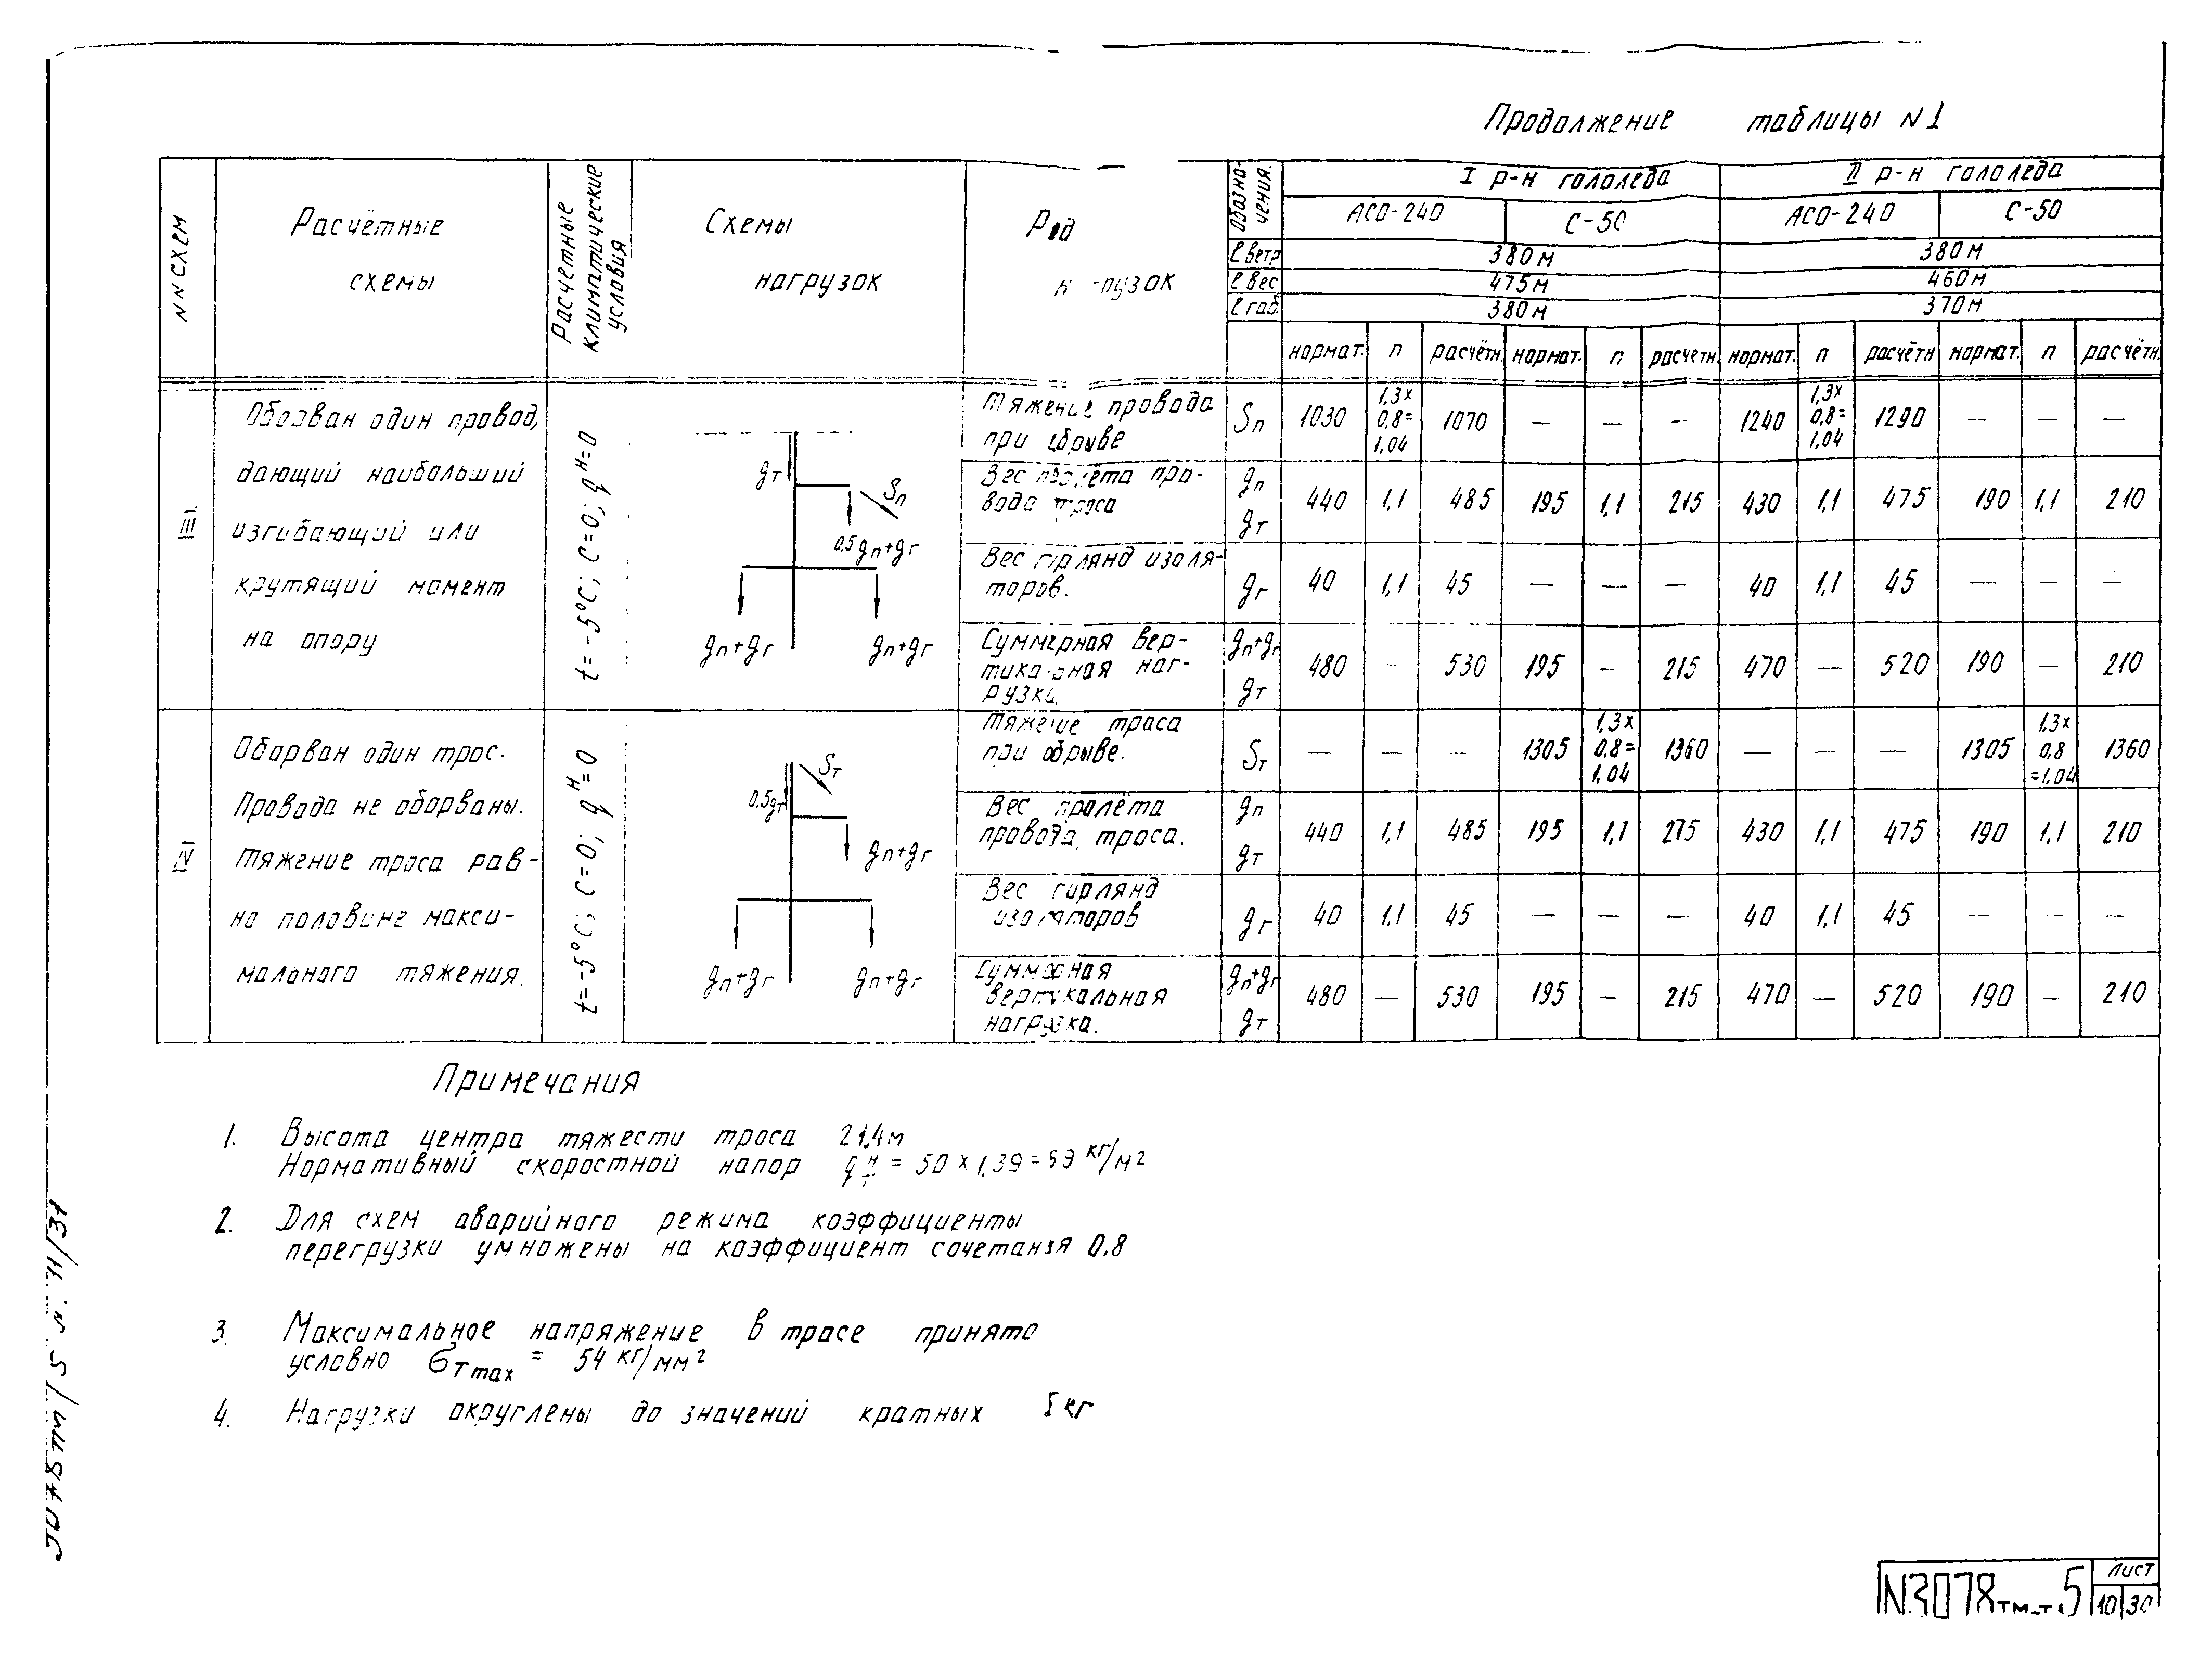 Продолжение таблицы N1
NN СХЕМ
Расчётные
схемы
Расчетные
климатические
условия
Схемы
нагрузок
Обозна-
чения.
I р-н гололеда
II р-н гололеда
АСО-240 С-50 АСО-240 С-50
ℓ ветр 380м 380м
ℓ вес 475м 460м
ℓ габ. 380м 370м
нормат. п расчётн. нормат. п расчетн. нормат. п расчётн нормат. п расчётн.
III
Оборван один провод,
дающий наибольший
изгибающий или
крутящий момент
на опору
t = -5°C; C=0; q ᴴ=0
gт
Sп
0,5 gп+gг
gп+gг gп+gг
Тяжение провода
при обрыве
Sп 1030 1,3х 0,8= 1,04 1070 — — — 1240 1,3х 0,8= 1,04 1290 — — —
Вес пролёта про-
вода троса
gп gт 440 1,1 485 195 1,1 215 430 1,1 475 190 1,1 210
Вес гирлянд изоля-
торов.
gг 40 1,1 45 — — — 40 1,1 45 — — —
Суммарная вер-
тикальная наг-
рузка.
gп+gг gт 480 — 530 195 — 215 470 — 520 190 — 210
IV
Оборван один трос.
Провода не оборваны.
Тяжение троса рав-
но половине макси-
мального тяжения.
t = -5°C; C=0; q ᴴ=0
0.5gт
Sт
gп+gг
gп+gг gп+gг
Тяжение троса
при обрыве.
Sт — — — 1305 1,3х 0,8= 1,04 1360 — — — 1305 1,3х 0,8 =1,04 1360
Вес пролёта
провода, троса.
gп gт 440 1,1 485 195 1,1 215 430 1,1 475 190 1,1 210
Вес гирлянд
изоляторов
gг 40 1,1 45 — — — 40 1,1 45 — — —
Суммарная
вертикальная
нагрузка.
gп+gг gт 480 — 530 195 — 215 470 — 520 190 — 210
Примечания
1. Высота центра тяжести троса 21,4м
Нормативный скоростной напор qᴴт = 50 х 1,39 = 69 кг/м²
2. Для схем аварийного режима коэффициенты
перегрузки умножены на коэффициент сочетания 0.8
3. Максимальное напряжение в тросе принято
условно бTmax = 54 кг/мм²
4. Нагрузки округлены до значений кратных 5 кг
N3078тм-т.5
Лист
10 30